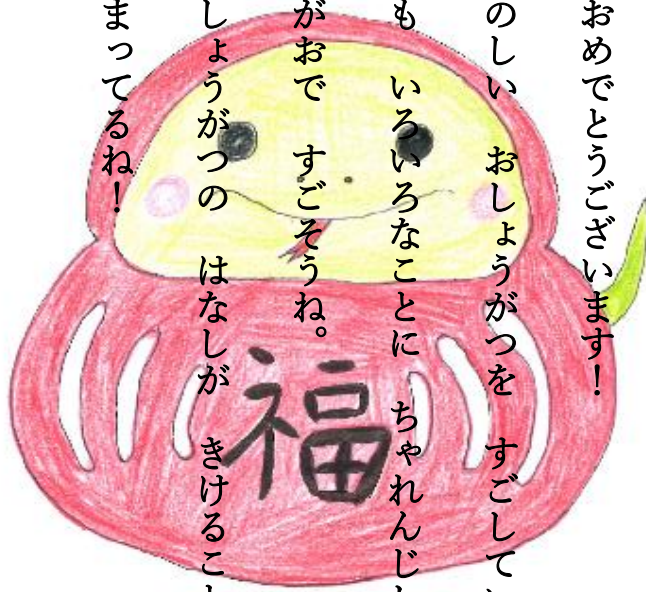 おめでとうございます！
のしい　おしょうがつを　すごして
も　いろいろなことに　ちゃれんじ
がおで　すごそうね。
しょうがつの　はなしが　きけるこ
まってるね！
福